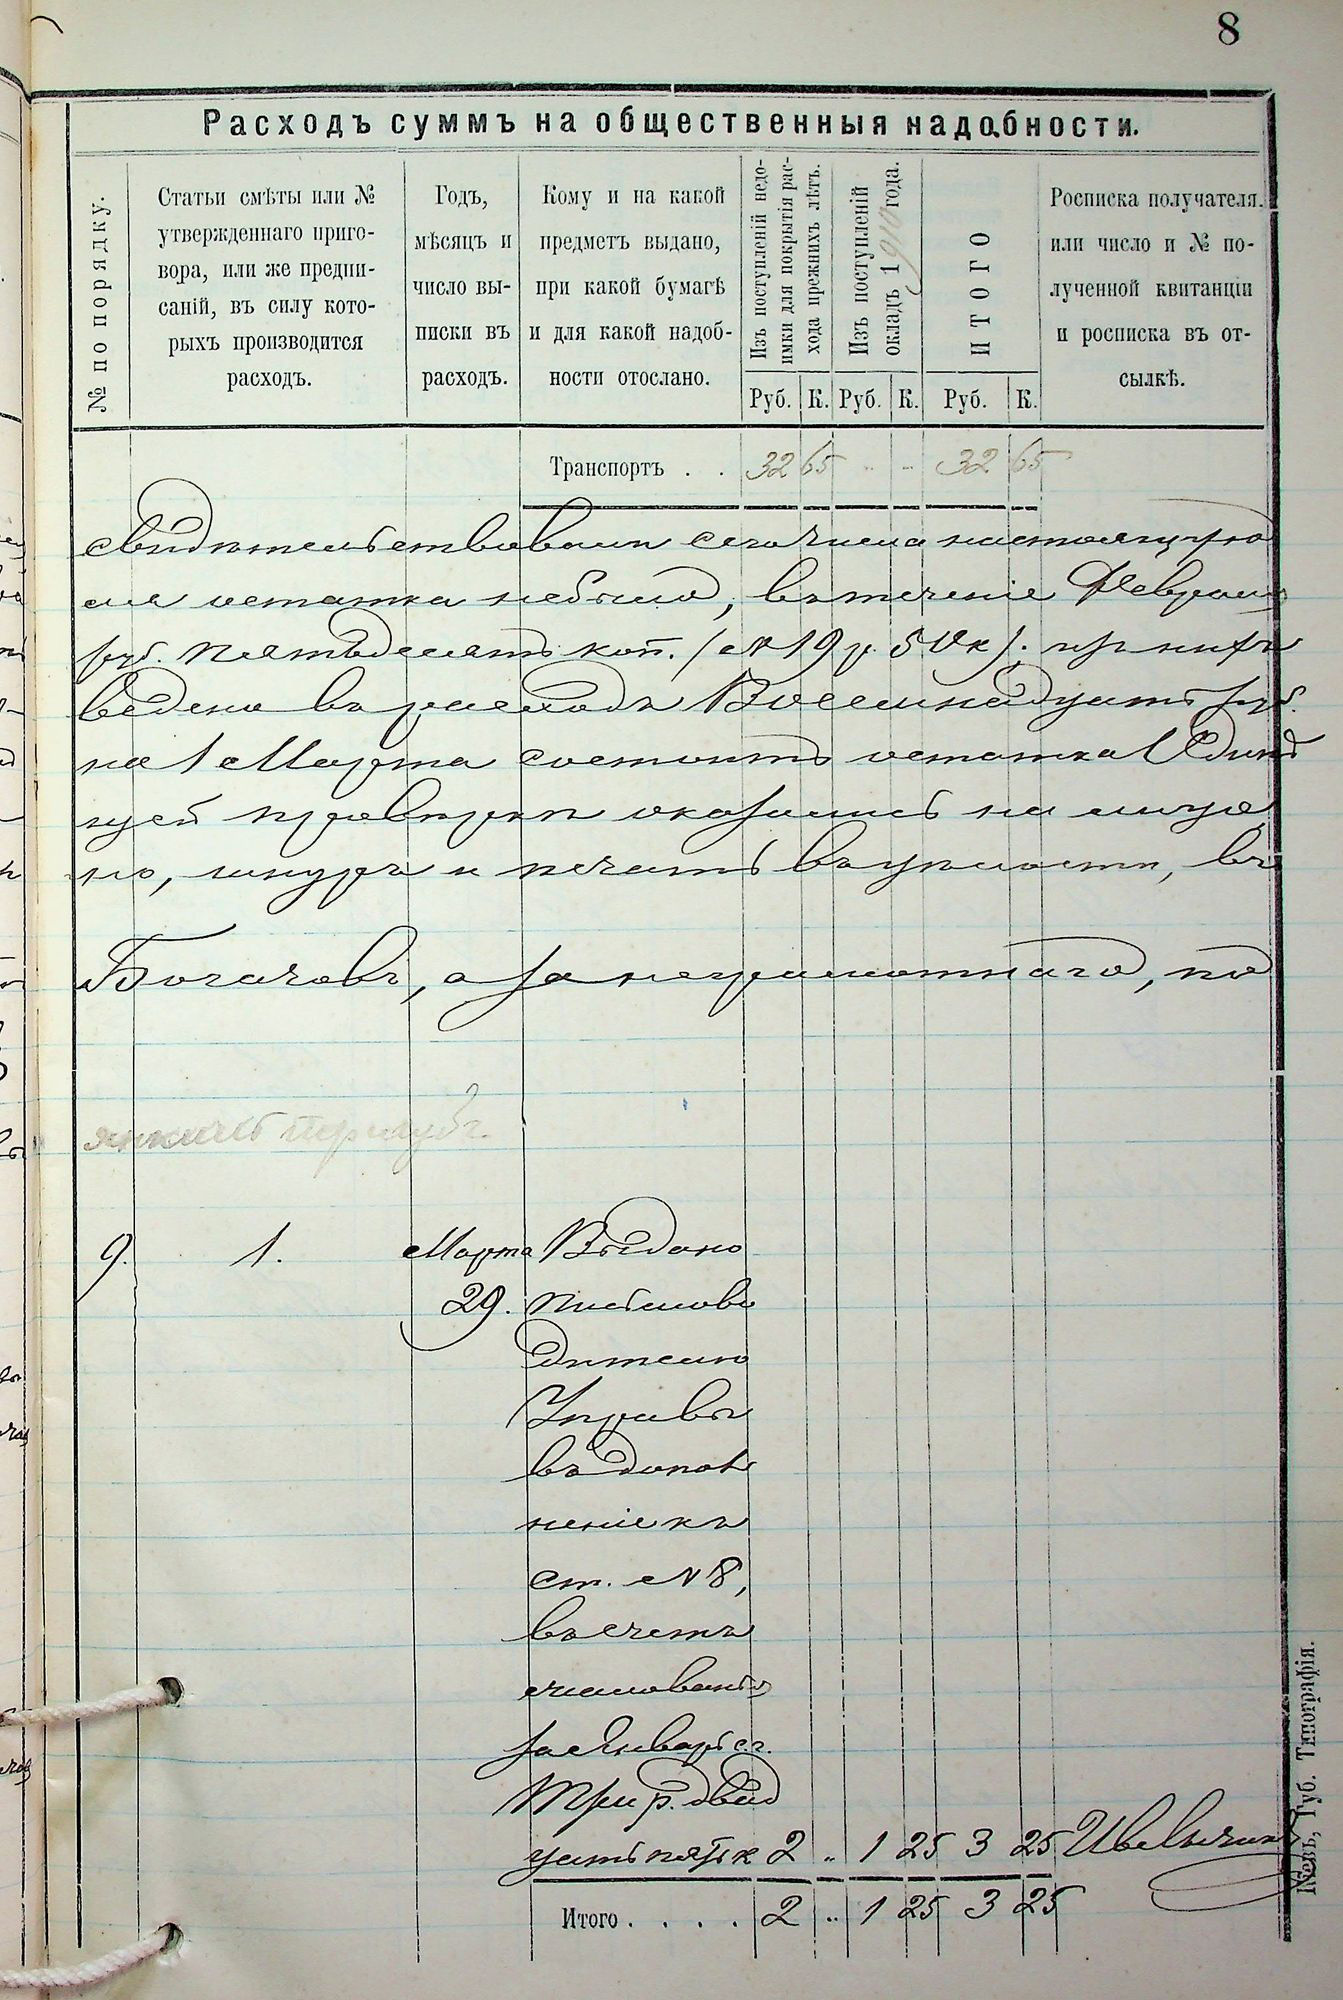 8
Расходъ суммъ на общественныя надобности.
№ по порядку.
Статьи смѣты или №
утвержденнаго приго-
вора, или же предпи-
саній, въ силу кото-
рыхъ производится
расходъ.
Годъ,
мѣсяцъ и
число вы-
писки въ
расходъ.
Кому и на какой
предметъ выдано,
при какой бумагѣ
и для какой надоб-
ности отослано.
Изъ поступленій недо-
имки для покрытія рас-
хода прежнихъ лѣтъ.
Изъ поступленій
окладъ 1910 года.
ИТОГО
Росписка получателя.
или число и № по-
лученной квитанціи
и росписка въ от-
сылкѣ.
Руб. К. Руб. К. Руб. К.
Транспортъ . . 32 65 „ „ 32 65
свидѣтельствовали сего числа настоящую
ля остатка небыло, въ теченіе Феврал
руб. пятьдесятъ коп. (№ 19 р. 50 к).
ведено въ расходъ Восемнадцать руб.
на 1 Марта состоитъ остатка Один
щей провѣрки оказались на лицо,
но, шнуръ и печать въ цѣлости, въ
Богачовъ, а за неграмотнаго, по
9. 1. Марта Выдано
29. письмово
дителю
Управы
въ допол
неніе къ
ст. № 8,
въ счетъ
жалованья
за Январь с.г.
Три р. двад
цать пять к 2 „ 1 25 3 25
Итого . . . . 2 „ 1 25 3 25
Кіевъ, Губ. Типографія.